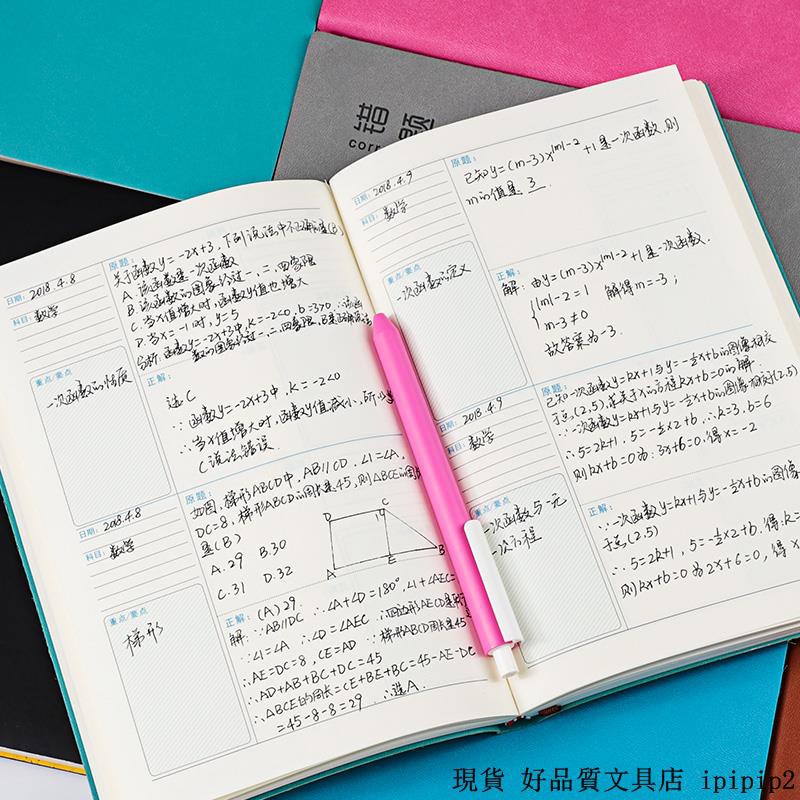 错题
corr
日期: 2018.4.8
科目: 数学
原题:
关于函数y=-2x+3,下列说法中不正确的是(B)
A.该函数是一次函数
B.该函数的图象经过一、二、四象限
C.当x值增大时,函数y值也增大
D.当x=-1时,y=5
分析:函数y=-2x+3中,k=-2<0,b=3>0,∴该函数的图象经过一、二、四象限
重点/要点
一次函数的性质
正解:
选C
∵函数y=-2x+3中,k=-2<0
∴当x值增大时,函数y值减小,所以
C说法错误.
日期: 2018.4.8
科目: 数学
原题:
如图,梯形ABCD中,AB∥CD,∠1=∠A,
DC=8,梯形ABCD的周长是45,则△BCE的周长
是(B)
A.29 B.30
C.31 D.32
D C
A E B
重点/要点
梯形
正解: (A) 29
解: ∵AB∥DC ∴∠A+∠D=180°,∠1+∠AEC=
∵∠1=∠A ∴∠D=∠AEC ∴四边形AECD是
∴AE=DC=8,CE=AD ∵梯形ABCD周长45
∴AD+AB+BC+DC=45
∴△BCE的周长=CE+BE+BC=45-AE-DC
=45-8-8=29 ∴选A.
日期: 2018.4.9
科目: 数学
原题:
已知y=(m-3)x^|m|-2 +1是一次函数,则
m的值是 3
重点/要点
一次函数的定义
正解:
解: 由y=(m-3)x^|m|-2+1是一次函数.
|m|-2=1 解得m=-3;
m-3≠0
故答案为-3.
日期: 2018.4.9
科目: 数学
原题:
已知一次函数y=kx+1与y=-½x+b的图像相交
于点(2,5),求关于x的方程kx+b=0的解
∵一次函数y=kx+1与y=-½x+b的图像相交于(2,5)
∴5=2k+1,5=-½×2+b,∴k=3,b=6
则kx+b=0为:3x+6=0,得x=-2
重点/要点
一次函数与一元
一次方程
正解:
∵一次函数y=kx+1与y=-½x+b的图像
于点(2,5)
∴5=2k+1,5=-½×2+b.得:k=
则kx+b=0为2x+6=0,得x
現貨 好品質文具店 ipipip2